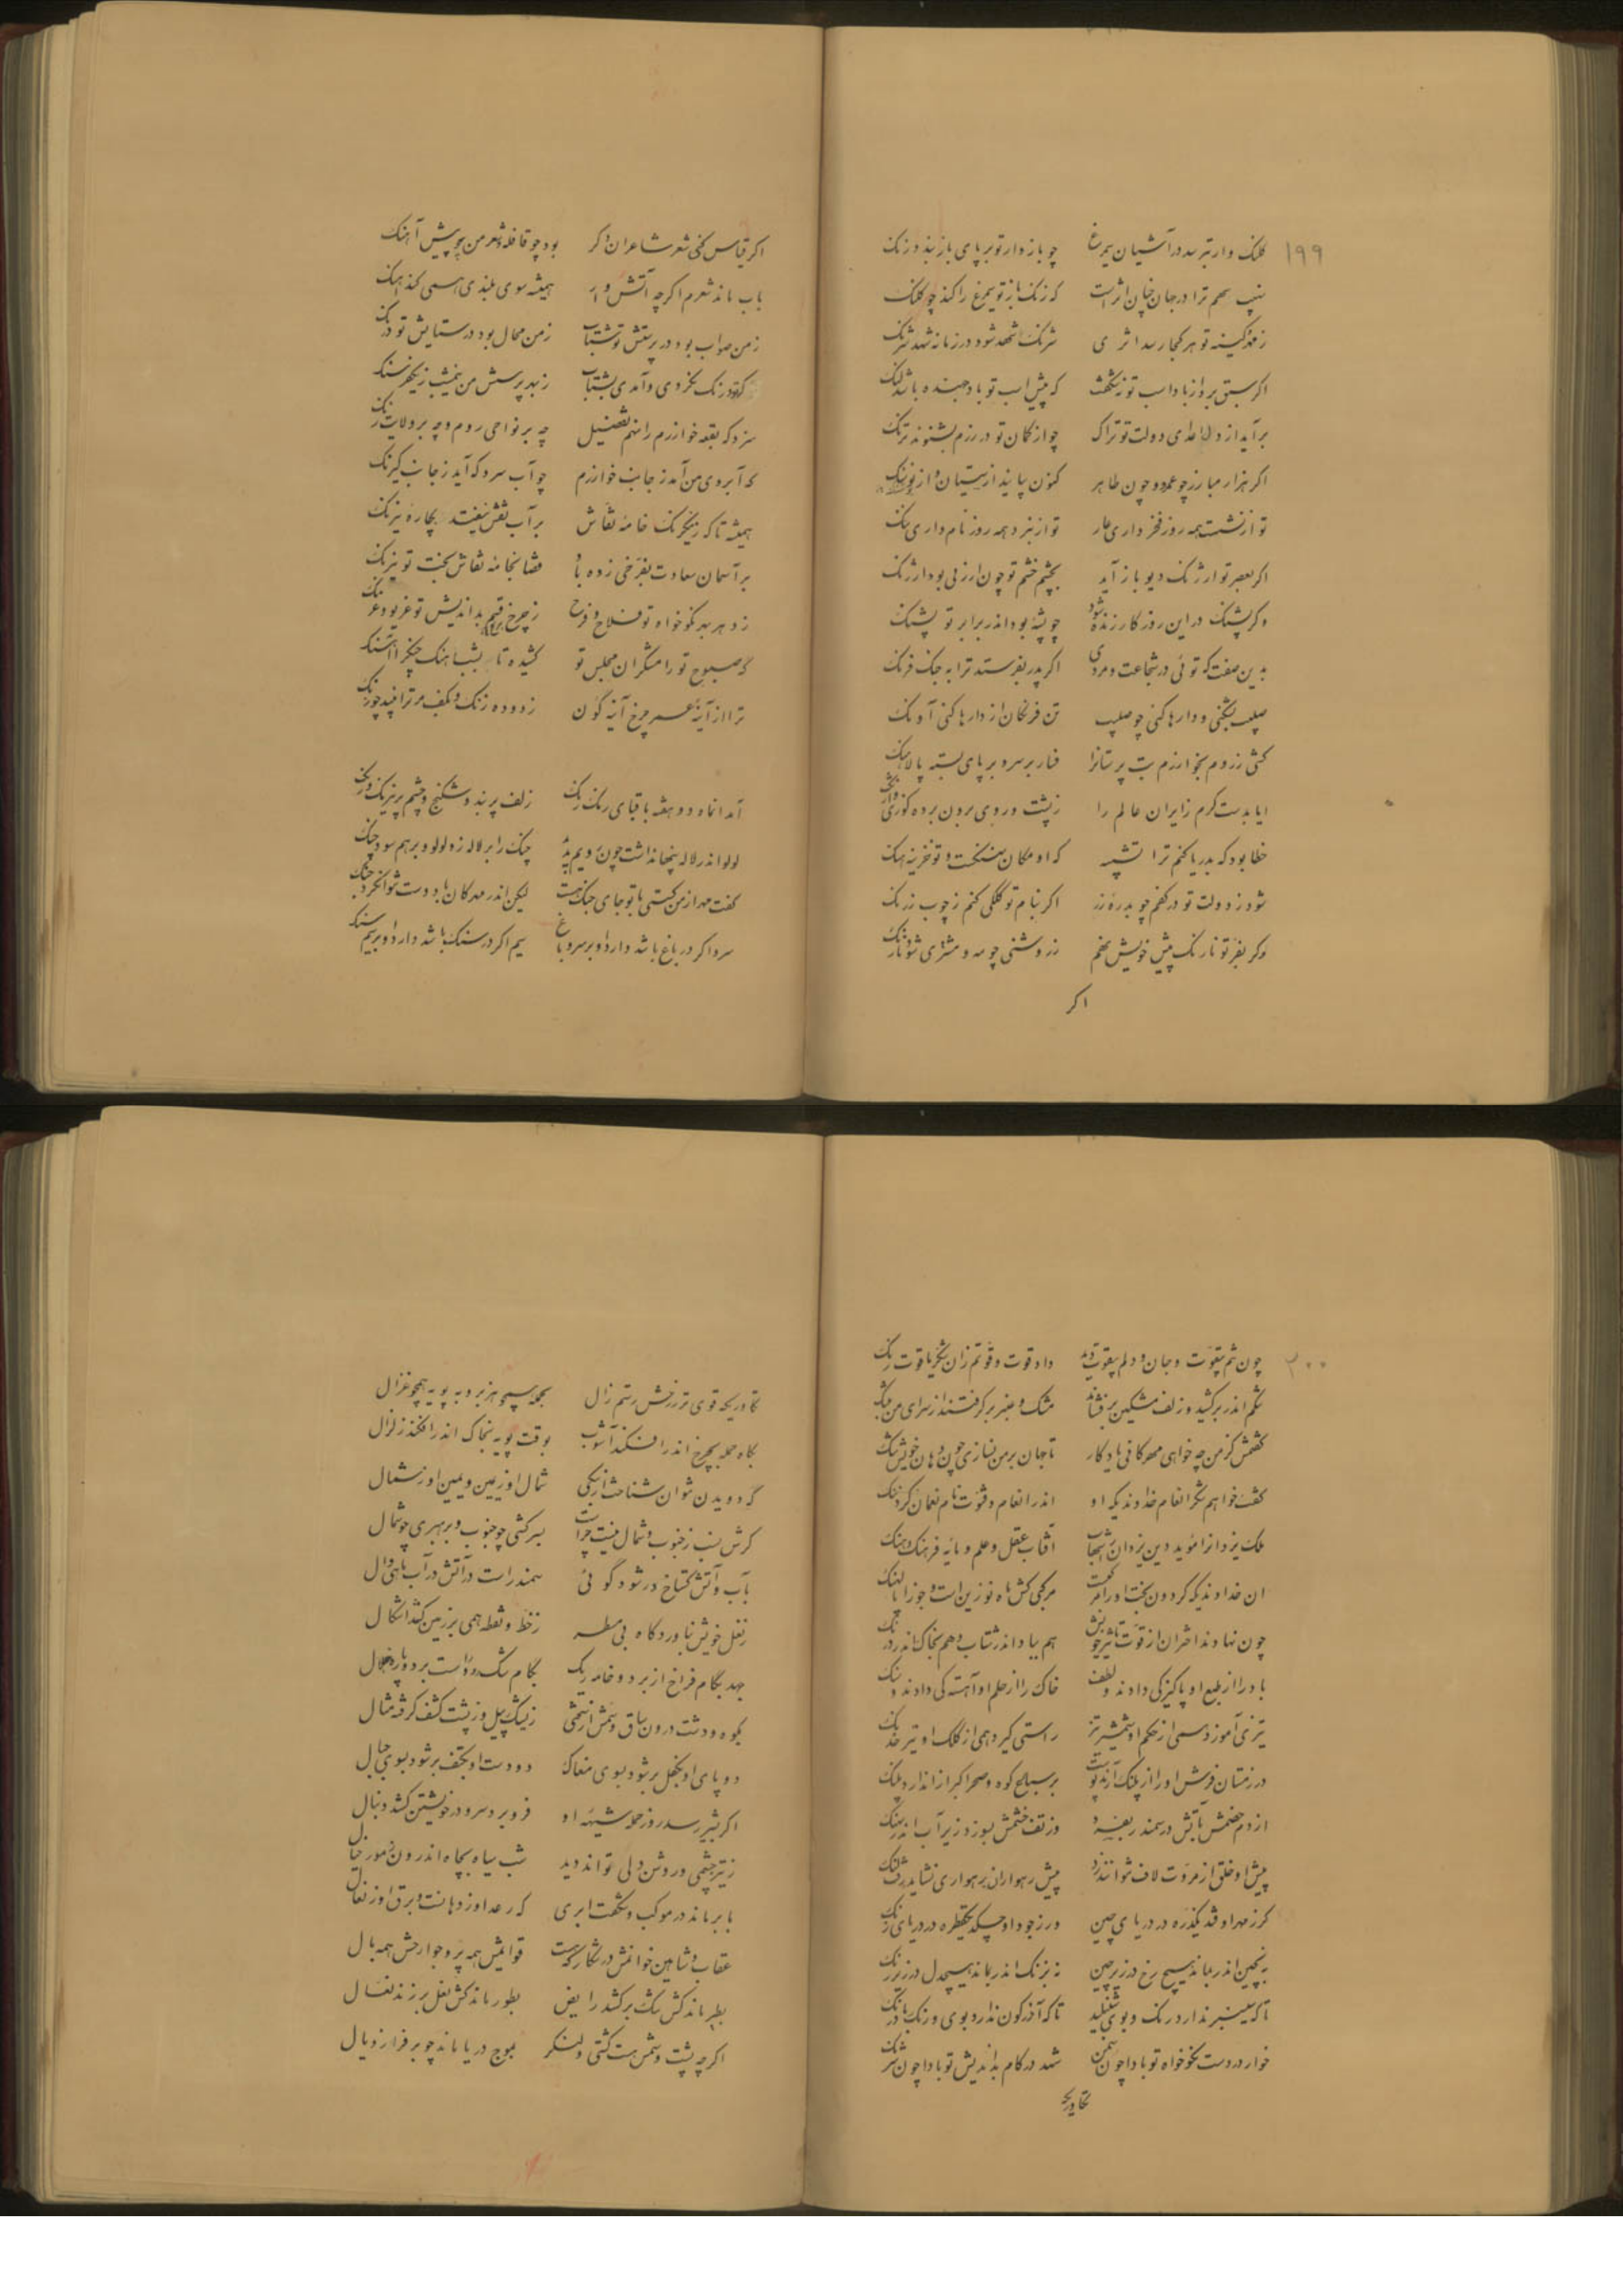 ۱۹۹
کلنک وار بترسد در آشیان سیمرغ چو باز دار تو بر پای باز بندد زنک
نهیب سهم ترا در جهان چنان اثر است که زنک باز تو سیمرغ را کند چو کلنک
کینه تو هر کجا رسد اثری شرنک شهد شود در زمانه شهد شرنک
اگر سبق برد از باد اسب تو نه شگفت که پیش اسب تو باد جهنده باشد لنک
برآید از دل اعدای دولت تو تراک چو از کمان تو در رزم بشنوند ترنک
اگر هزار مبارز چو عمرو و چون طاهر کنون بیایند از سیستان و از
تو از نشست همه روز فخر داری عار تو از نبرد همه روز نام داری ننک
اگر بعصر تو ارژنک دیو باز آید بچشم خشم تو چون ارزنی بود ارژنک
وگر پشنک در این روزگار زنده شود چو پشه بود اندر برابر تو پشنک
بدین صفت که توئی در شجاعت و مردی اگر پدر بفرستد ترا به جنک فرنک
صلیب بشکنی و دارها کنی چو صلیب تن فرنگان از دارها کنی آونک
کشی ز روم بخوارزم بت پرستانرا فسار بر سر و بر پای بسته پالاهنک
ایا بدست کرم زایران عالم را ز پشت و روی برون برده کوژی و آژنک
خطا بود که بدریا کنم ترا تشبیه که او مکان نهنکست و تو خزینه هنک
شود ز دولت تو در کفم چو بدره زر اگر بنام تو کلکی کنم ز چوب زرنک
وگر بفر تو نارنک پیش خویش نهم ز روشنی چو مه و مشتری شود نارنک
اگر
اگر قیاس کنی شعر شاعران دگر بود چو قافله و شعر من چو پیش آهنک
بآب ماند شعرم اگرچه آتش وار همیشه سوی بلندی همی کند آهنک
ز من صواب بود در پرستش تو شتاب ز من محال بود در ستایش تو درنک
درنک بکردی و آمدی بشتاب ز بهر پرسش من
سزد که بقعه خوارزم را نهم تفضیل چه بر نواحی روم و چه بر ولایت زنک
که آبروی من آمد ز جانب خوارزم چو آب سرد که آید ز جانب گیرنک
همیشه تا که ز نیرنک خامه نقاش بر آب نقش نیفتد بچاره نیرنک
بر آسمان سعادت بفرخی زده باد قضا بخامه نقاش بخت تو نیرنک
ز دهر بهر نکوخواه تو فلاح و فرح ز چرخ قسم بداندیش تو غریو و غرنک
که صبوح تو رامشگران مجلس تو کشیده تا بشباهنک چنگ را آهنک
ترا از آینه عمر چرخ آینه گون زدوده زنک و بکف بر ترا نبید چو زنک
آمد آن ماه دو هفته با قبای رنک رنک زلف پر بند و شکنج و چشم پر نیرنک و رنک
لولو اندر لاله پنهان داشت چون رویم بدید چنک را بر لاله زد لولو و بر هم سود چنک
گفت مهر از من گسستی با تو جای جنک هست لیکن اندر مهرگان با دوست نتوان کرد جنک
سرو اگر در باغ باشد دارد او بر سرو باغ سیم اگر در سنک باشد دارد او بر سیم سنک
۲۰۰
چون شدم بیقوت و جان و دلم بیقوت دید داد قوت و قوتم زان شکر یاقوت رنک
تنگم اندر بر کشید و زلف مشکین بر فشاند مشک و عنبر بر گرفتند از سرای من بتنک
گفتمش کز من چه خواهی مهرگانی یادگار تا جهان بر من نسازی چون دهان خویش تنک
گفت خواهم شکر انعام خداوندیکه او اندر انعام و فتوت نام نعمان کرد ننک
ملک یزدانرا مؤید دین یزدانرا شهاب آفتاب عقل و علم و مایه فرهنک و هنک
آن خداوندیکه گردون بخت او را مرکبست مرکبی کش ماه نو زین است و جوزا پالهنک
چون نهادند اختران از قوت تأثیر خویش هم بباد اندر شتاب و هم بخاک اندر درنک
باد را از طبع او پاکیزگی دادند و لطف خاک را از حلم او آهستگی دادند و سنک
تیزی آموزد همی از حکم او شمشیر تیز راستی گیرد همی از کلک او تیر خدنک
در زمستان فرش او را از پلنک آرند پوست بر سباع کوه و صحرا کبر از آن دارد پلنک
از دم خصمش بآتش در سمندر بفسرد وز تف خشمش بسوزد زیر آب اندر نهنک
پیش او خلق از مروت لاف نتوانند زد پیش رهواران برهواری نشاید رفت لنک
گر ز مهر او فتد یکذره در دریای چین ور ز جود او چکد یکقطره در دریای زنک
نه بچین اندر بماند هیچ رخ در زیر چین نه بزنک اندر بماند هیچ دل در زیر زنک
تا که سیسنبر ندارد رنک و بوی شنبلید تا که آذرگون ندارد بوی و رنک بادرنک
خار در دست نکوخواه تو بادا چون سمن شهد در کام بداندیش تو بادا چون شرنک
تکاوریکه
تکاوریکه قوی تر ز رخش رستم زال بحمله همچو هزبر و به پویه همچو غزال
بگاه حمله بچرخ اندر افکند آشوب بوقت پویه بخاک اندر افکند زلزال
که دویدن نتوان شناخت از تیزی شمال او ز یمین و یمین او ز شمال
گرش نسب ز جنوب و شمال نیست چراست بسرکشی چو جنوب و برهبری چو شمال
بآب و آتش گستاخ در شود گوئی سمندر است در آتش در آب ماهی وال
ز نعل خویش بآوردگاه بی مسطر ز خط و نقطه همی بر زمین کشد اشکال
جهد بگام فراخ از بر دو خامه ریک بگام تنک رود راست بر دو پاره نال
بکوه و دشت درون ساق و سمش از سختی ز نیشک پیل و ز پشت کشف گرفته مثال
دو پای او بکفل بر شود بسوی مغاک دو دست او بکتف بر شود بسوی جبال
اگر بشیر رسد روز حمله شیهه او فرو برد سر و در خویشتن کشد دنبال
ز تیزچشمی و روشن دلی تواند دید شب سیاه بچاه اندرون ز مور خیال
بابر ماند در موکب و شگفت ابری که رعد او ز دهانست و برق او ز نعال
عقاب و شاهین خوانمش در شکار که هست قوائمش همه پر و جوارحش همه بال
بطیر ماند کش تنک بر کشد رایض بطور ماند کش نعل بر زند نعال
اگرچه پشت و سمش هست کشتی و لنگر بموج دریا ماند چو بر فرازد یال